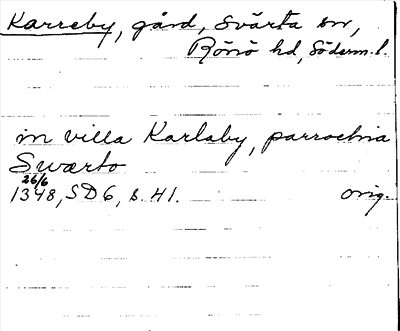 Karreby, gård, Svärta sn,
Rönö hd, Söderm. l.
in villa Karlaby, parrochia
Swærto
26/6
1348, SD 6, s. 41.
orig.